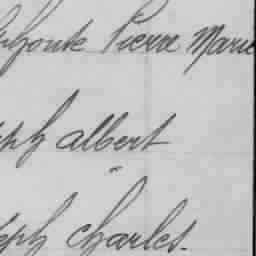 lphonse Pierre Marie
eph albert
"
eph Charles.